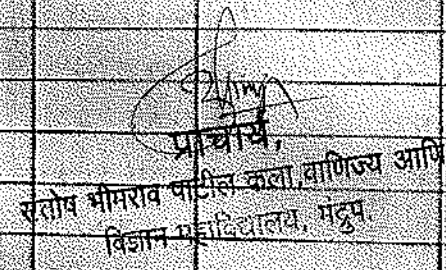 प्राचार्य,
संतोष भीमराव पाटील कला,वाणिज्य आणि
विज्ञान महाविद्यालय, मंद्रुप.